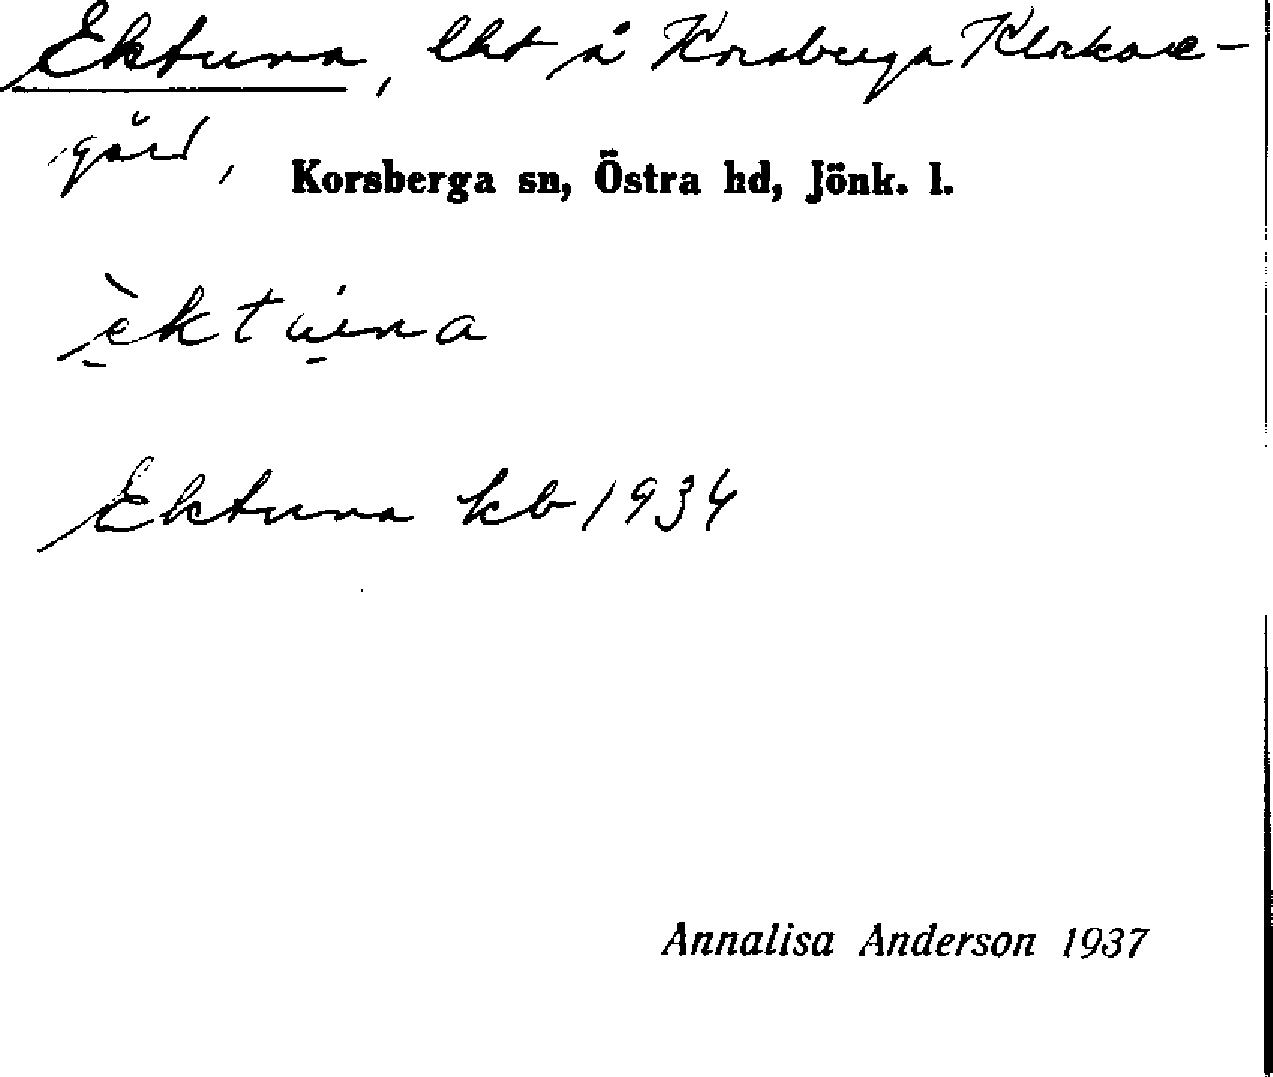 Ektuna, lht å Korsberga Klockare-
gård, Korsberga sn, Östra hd, Jönk. l.
Ektuna kb 1934
Annalisa Anderson 1937